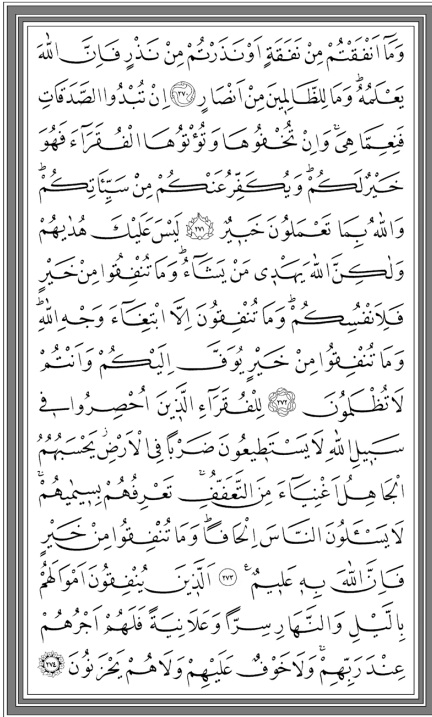 وَمَٓا اَنْفَقْتُمْ مِنْ نَفَقَةٍ اَوْ نَذَرْتُمْ مِنْ نَذْرٍ فَاِنَّ اللّٰهَ
يَعْلَمُهُۜ وَمَا لِلظَّالِمٖينَ مِنْ اَنْصَارٍ ﴿٢٧٠﴾ اِنْ تُبْدُوا الصَّدَقَاتِ
فَنِعِمَّا هِيَۚ وَاِنْ تُخْفُوهَا وَتُؤْتُوهَا الْفُقَرَٓاءَ فَهُوَ
خَيْرٌ لَكُمْۜ وَيُكَفِّرُ عَنْكُمْ مِنْ سَيِّـَٔاتِكُمْۜ
وَاللّٰهُ بِمَا تَعْمَلُونَ خَبٖيرٌ ﴿٢٧١﴾ لَيْسَ عَلَيْكَ هُدٰيهُمْ
وَلٰكِنَّ اللّٰهَ يَهْدٖي مَنْ يَشَٓاءُۜ وَمَا تُنْفِقُوا مِنْ خَيْرٍ
فَلِاَنْفُسِكُمْۜ وَمَا تُنْفِقُونَ اِلَّا ابْتِغَٓاءَ وَجْهِ اللّٰهِۜ
وَمَا تُنْفِقُوا مِنْ خَيْرٍ يُوَفَّ اِلَيْكُمْ وَاَنْتُمْ
لَا تُظْلَمُونَ ﴿٢٧٢﴾ لِلْفُقَرَٓاءِ الَّذٖينَ اُحْصِرُوا فٖي
سَبٖيلِ اللّٰهِ لَا يَسْتَطٖيعُونَ ضَرْبًا فِي الْاَرْضِۘ يَحْسَبُهُمُ
الْجَاهِلُ اَغْنِيَٓاءَ مِنَ التَّعَفُّفِۚ تَعْرِفُهُمْ بِسٖيمٰيهُمْۚ
لَا يَسْـَٔلُونَ النَّاسَ اِلْحَافًاۜ وَمَا تُنْفِقُوا مِنْ خَيْرٍ
فَاِنَّ اللّٰهَ بِهٖ عَلٖيمٌ ﴿٢٧٣﴾ اَلَّذٖينَ يُنْفِقُونَ اَمْوَالَهُمْ
بِالَّيْلِ وَالنَّهَارِ سِرًّا وَعَلَانِيَةً فَلَهُمْ اَجْرُهُمْ
عِنْدَ رَبِّهِمْۚ وَلَا خَوْفٌ عَلَيْهِمْ وَلَا هُمْ يَحْزَنُونَ ﴿٢٧٤﴾